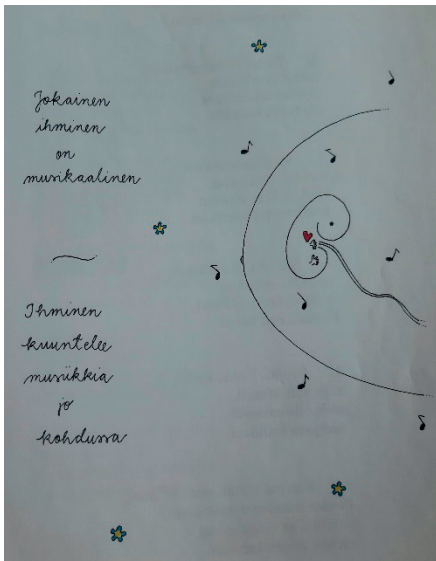 Jokainen
ihminen
on
musikaalinen
Ihminen
kuuntelee
musiikkia
jo
kohdussa